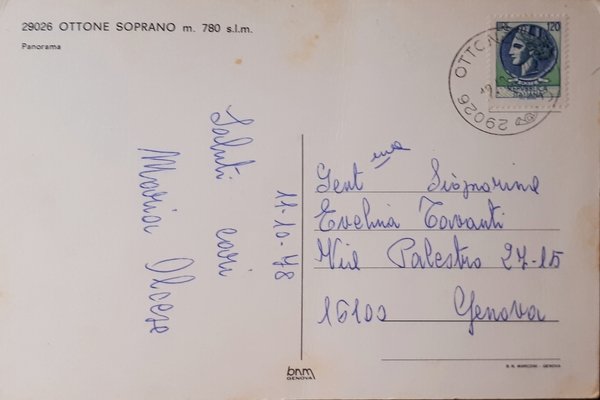 29026 OTTONE SOPRANO m. 780 s.l.m.
Panorama
120
29026 OTTONE
Saluti cari
Maria Olcese
11-10-78
Gent ma Signorine
Evelina Tovanti
Via Palestro 27-15
16100 Genova
bnm
GENOVA
B.N. MARCONI - GENOVA